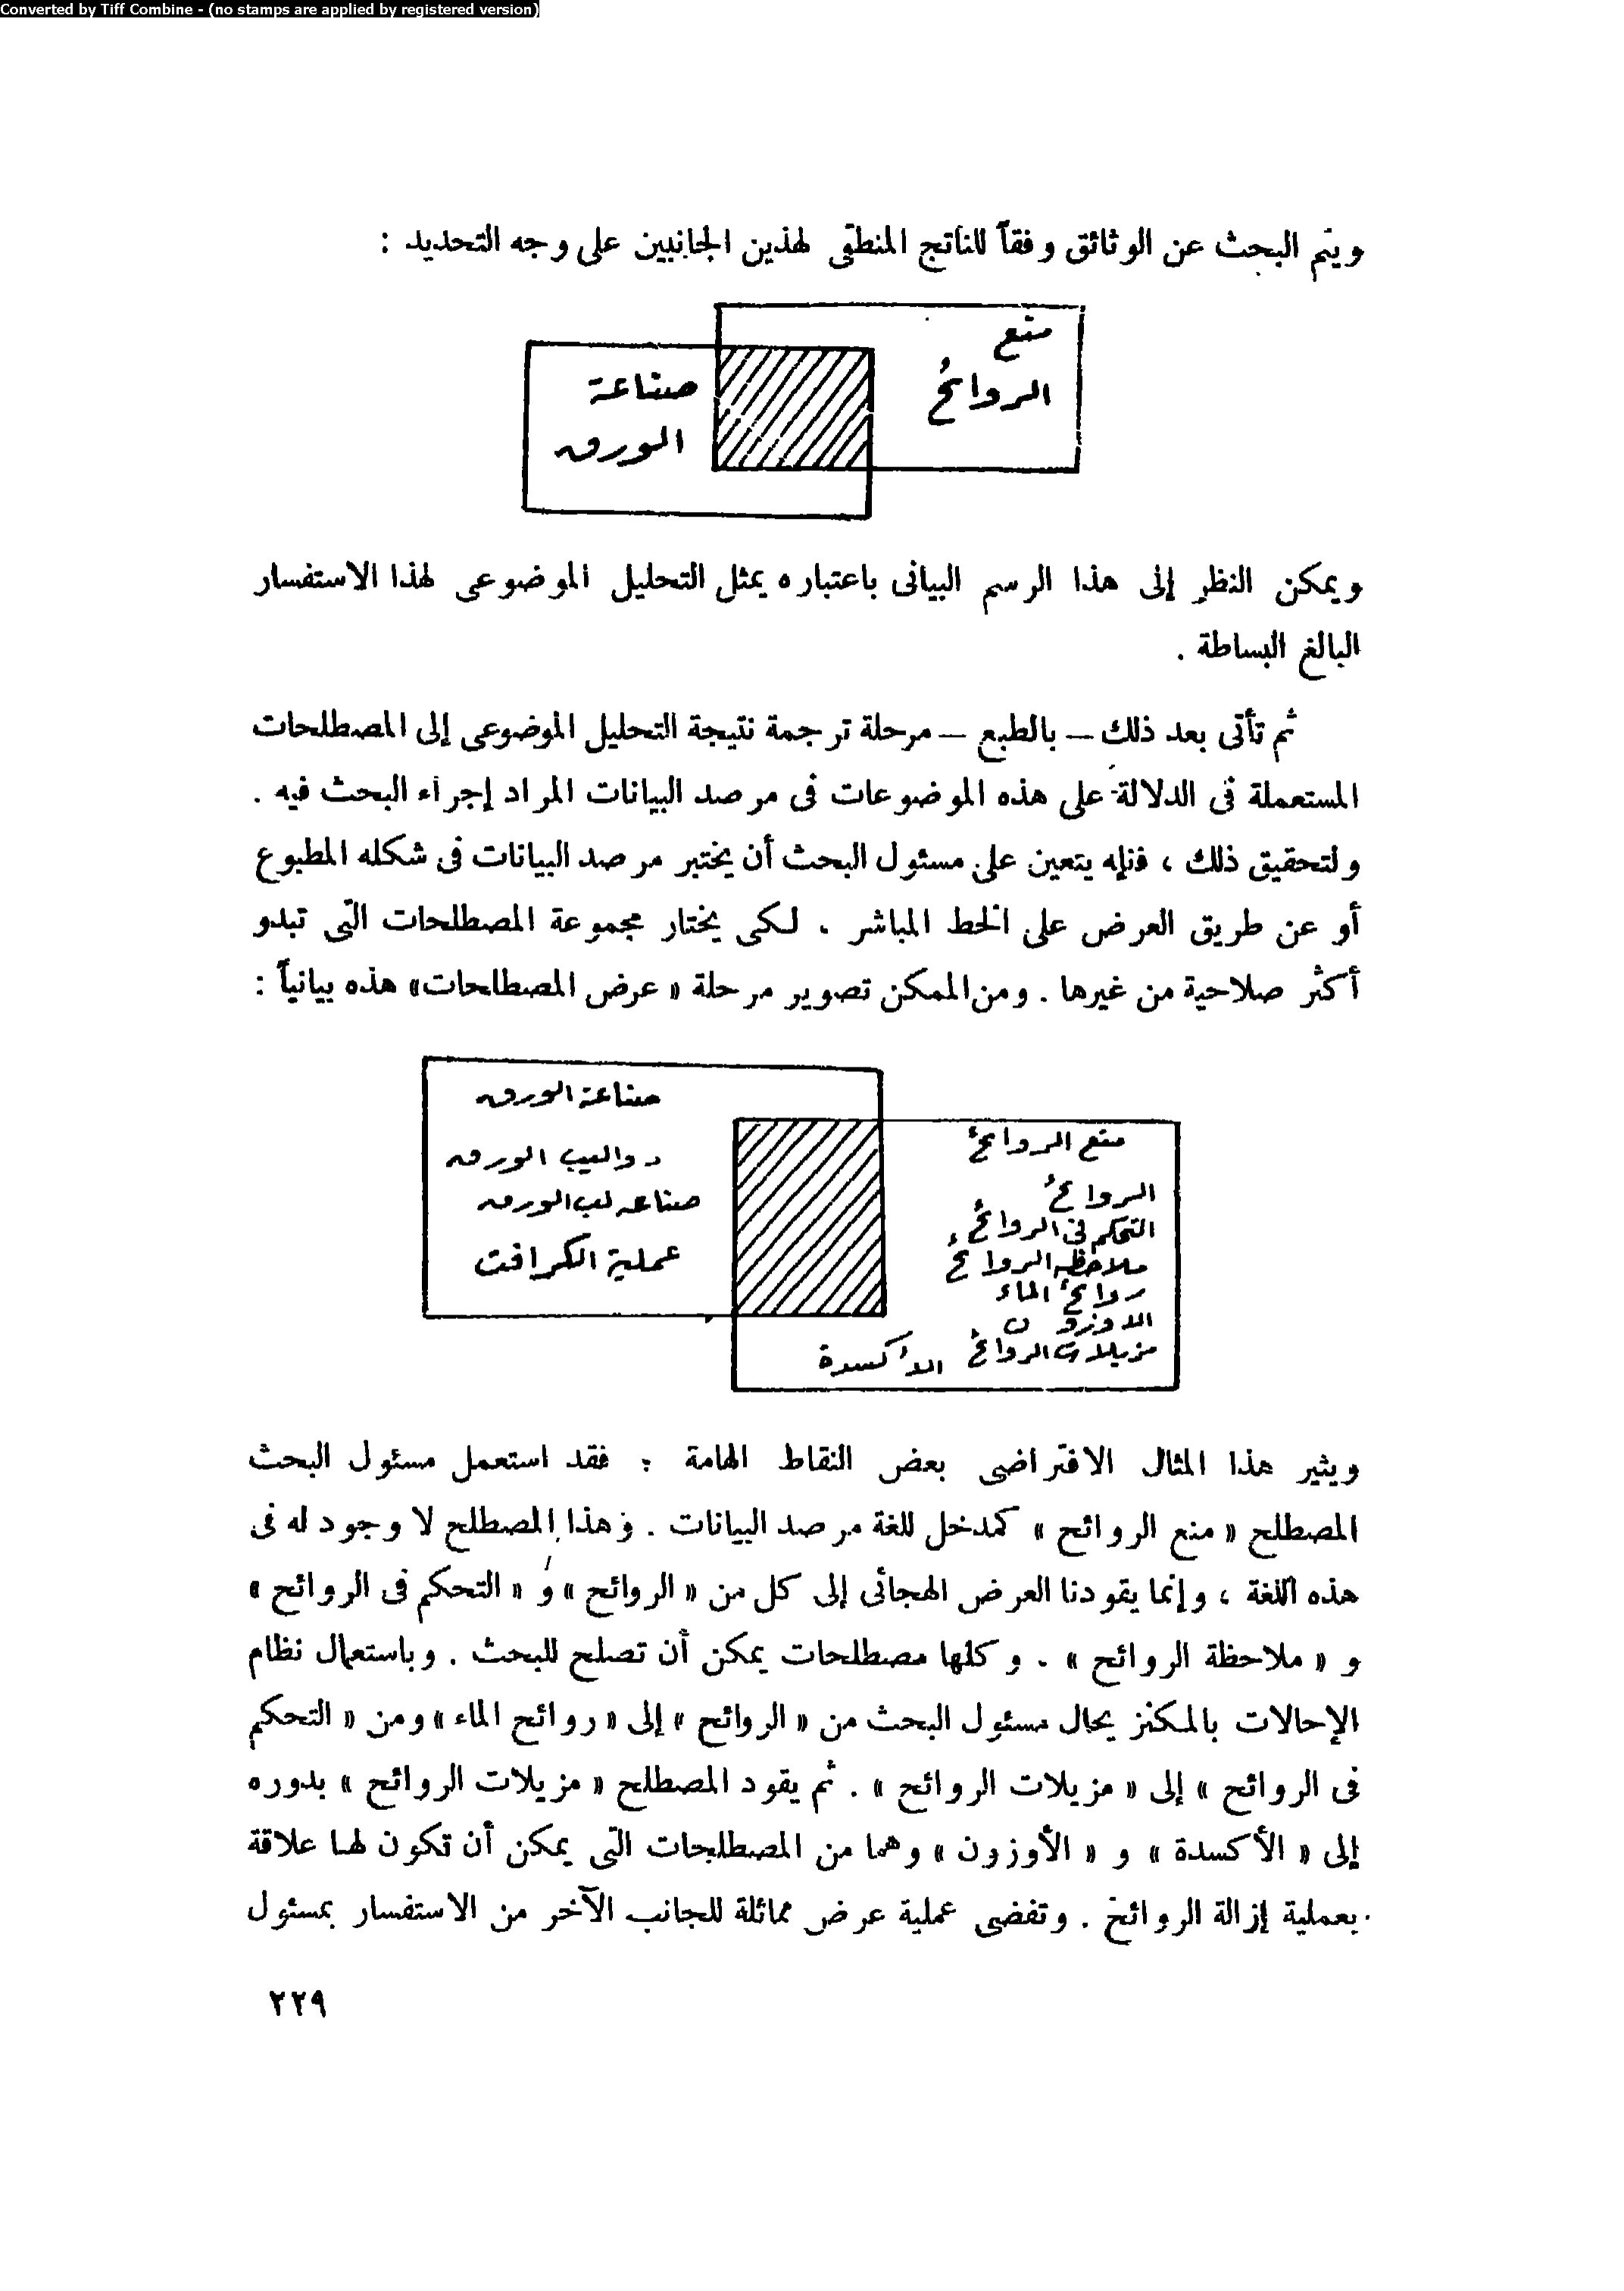 Converted by Tiff Combine - (no stamps are applied by registered version)
ويتم البحث عن الوثائق وفقاً للناتج المنطقى لهذين الجانبين على وجه التحديد :
منع
الروائح
صناعة
الورق
ويمكن النظر إلى هذا الرسم البيانى باعتباره يمثل التحليل الموضوعى لهذا الاستفسار
البالغ البساطة .
ثم تأتى بعد ذلك – بالطبع – مرحلة ترجمة نتيجة التحليل الموضوعى إلى المصطلحات
المستعملة فى الدلالة على هذه الموضوعات فى مرصد البيانات المراد إجراء البحث فيه .
ولتحقيق ذلك ، فإنه يتعين على مسئول البحث أن يختبر مرصد البيانات فى شكله المطبوع
أو عن طريق العرض على الخط المباشر ، لكى يختار مجموعة المصطلحات التى تبدو
أكثر صلاحية من غيرها . ومن الممكن تصوير مرحلة « عرض المصطلحات» هذه بيانياً :
صناعة الورق
الورق
صناعه لب الورق
عملية الكرافت
منع الروائح
الروائح
التحكم فى الروائح
ملاحظه الروائح
روائح الماء
الاوزون
مزيلات الروائح
الأكسدة
ويثير هذا المثال الافتراضى بعض النقاط الهامة : فقد استعمل مسئول البحث
المصطلح « منع الروائح » كمدخل للغة مرصد البيانات . وهذا المصطلح لا وجود له فى
هذه اللغة ، وإنما يقودنا العرض الهجائى إلى كل من « الروائح » و « التحكم فى الروائح »
و « ملاحظة الروائح » . وكلها مصطلحات يمكن أن تصلح للبحث . وباستعمال نظام
الإحالات بالمكنز يحال مسئول البحث من « الروائح » إلى « روائح الماء » ومن « التحكم
فى الروائح » إلى « مزيلات الروائح » . ثم يقود المصطلح « مزيلات الروائح » بدوره
إلى « الأكسدة » و « الأوزون » وهما من المصطلحات التى يمكن أن تكون لها علاقة
بعملية إزالة الروائح . وتفضى عملية عرض مماثلة للجانب الآخر من الاستفسار بمسئول
٢٢٩